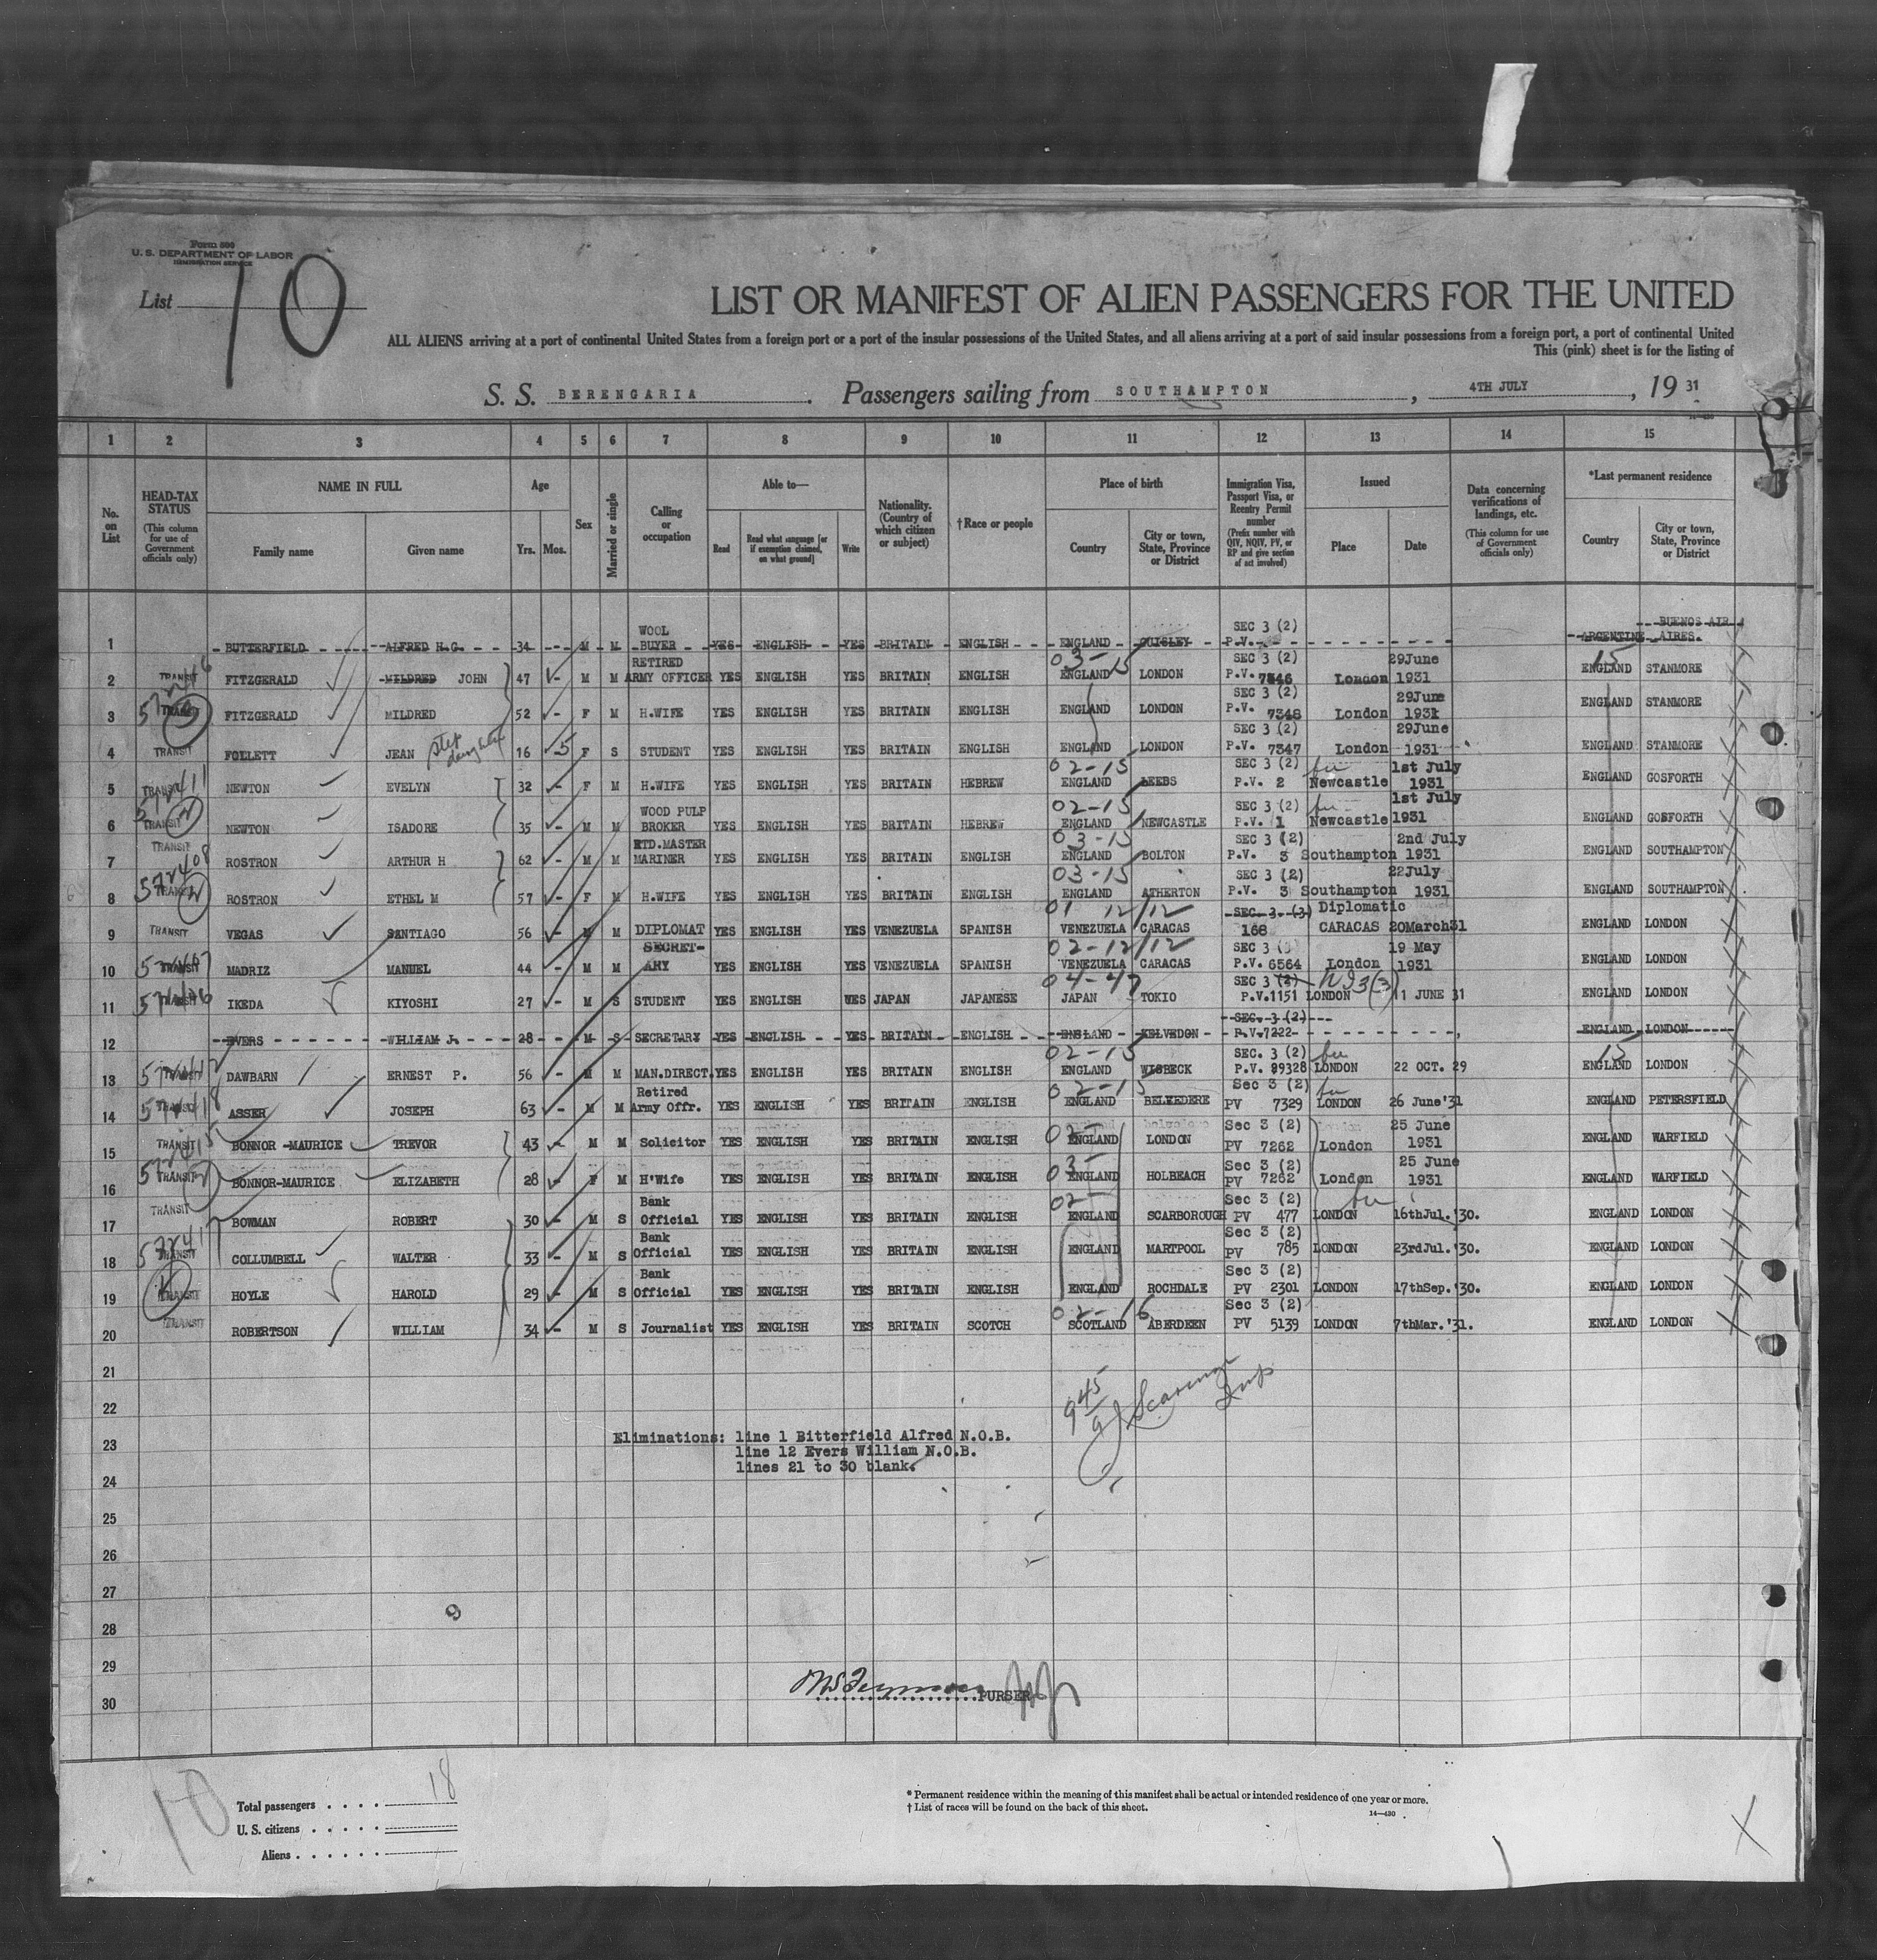 Form 500
U. S. DEPARTMENT OF LABOR
IMMIGRATION SERVICE
List 10
LIST OR MANIFEST OF ALIEN PASSENGERS FOR THE UNITED
ALL ALIENS arriving at a port of continental United States from a foreign port or a port of the insular possessions of the United States, and all aliens arriving at a port of said insular possessions from a foreign port, a port of continental United
This (pink) sheet is for the listing of
S. S. BERENGARIA. Passengers sailing from SOUTHAMPTON, 4TH JULY, 19 31
1 2 3 4 5 6 7 8 9 10 11 12 13 14 15
No. on List
HEAD-TAX STATUS (This column for use of Government officials only)
NAME IN FULL
Family name
Given name
Age
Yrs. Mos.
Sex
Married or single
Calling or occupation
Able to—
Read
Read what language [or if exemption claimed, on what ground]
Write
Nationality. (Country of which citizen or subject)
†Race or people
Place of birth
Country
City or town, State, Province or District
Immigration Visa, Passport Visa, or Reentry Permit number (Prefix number with QIV, NQIV, PV, or RP and give section of act involved)
Issued
Place
Date
Data concerning verifications of landings, etc. (This column for use of Government officials only)
*Last permanent residence
Country
City or town, State, Province or District
1 BUTTERFIELD ALFRED H.G. 34 M M WOOL BUYER YES ENGLISH YES BRITAIN ENGLISH ENGLAND GUISLEY SEC 3 (2) P.V. ARGENTINE BUENOS AIRES.
2 TRANSIT FITZGERALD MILDRED JOHN 47 - M M RETIRED ARMY OFFICER YES ENGLISH YES BRITAIN ENGLISH 03-15 ENGLAND LONDON SEC 3 (2) P.V. 7346 London 29June 1931 15 ENGLAND STANMORE
3 TRANSIT FITZGERALD MILDRED 52 - F M H.WIFE YES ENGLISH YES BRITAIN ENGLISH ENGLAND LONDON SEC 3 (2) P.V. 7348 London 29June 1931 ENGLAND STANMORE
4 TRANSIT FOLLETT JEAN step daughter 16 5 F S STUDENT YES ENGLISH YES BRITAIN ENGLISH ENGLAND LONDON SEC 3 (2) P.V. 7347 London 29June 1931 ENGLAND STANMORE
5 TRANSIT NEWTON EVELYN 32 - F M H.WIFE YES ENGLISH YES BRITAIN HEBREW 02-15 ENGLAND LEEDS SEC 3 (2) P.V. 2 Newcastle 1st July 1931 ENGLAND GOSFORTH
6 TRANSIT NEWTON ISADORE 35 - M M WOOD PULP BROKER YES ENGLISH YES BRITAIN HEBREW 02-15 ENGLAND NEWCASTLE SEC 3 (2) P.V. 1 Newcastle 1st July 1931 ENGLAND GOSFORTH
7 TRANSIT ROSTRON ARTHUR H 62 - M M RTD.MASTER MARINER YES ENGLISH YES BRITAIN ENGLISH 03-15 ENGLAND BOLTON SEC 3 (2) P.V. 3 Southampton 2nd July 1931 ENGLAND SOUTHAMPTON
8 TRANSIT ROSTRON ETHEL M 57 - F M H.WIFE YES ENGLISH YES BRITAIN ENGLISH 03-15 ENGLAND ATHERTON SEC 3 (2) P.V. 3 Southampton 22July 1931 ENGLAND SOUTHAMPTON
9 TRANSIT VEGAS SANTIAGO 56 - M M DIPLOMAT YES ENGLISH YES VENEZUELA SPANISH 01 12/12 VENEZUELA CARACAS SEC. 3 (3) 168 Diplomatic CARACAS 20March31 ENGLAND LONDON
10 TRANSIT MADRIZ MANUEL 44 - M M SECRETARY YES ENGLISH YES VENEZUELA SPANISH 02-12/12 VENEZUELA CARACAS SEC 3 P.V. 6564 London 19 May 1931 ENGLAND LONDON
11 IKEDA KIYOSHI 27 - M S STUDENT YES ENGLISH YES JAPAN JAPANESE 04-47 JAPAN TOKIO SEC 3 (2) P.V.1151 LONDON 11 JUNE 31 ENGLAND LONDON
12 EVERS WILLIAM J. 28 M S SECRETARY YES ENGLISH YES BRITAIN ENGLISH ENGLAND KELVEDON SEC. 3 (2) P.V.7222 ENGLAND LONDON
13 DAWBARN ERNEST P. 56 - M M MAN.DIRECT. YES ENGLISH YES BRITAIN ENGLISH 02-15 ENGLAND WISBECK SEC. 3 (2) P.V. 99328 LONDON 22 OCT. 29 15 ENGLAND LONDON
14 ASSER JOSEPH 63 - M M Retired Army Offr. YES ENGLISH YES BRITAIN ENGLISH 02-15 ENGLAND BELVEDERE Sec 3 (2) PV 7329 LONDON 26 June'31 ENGLAND PETERSFIELD
15 TRANSIT BONNOR-MAURICE TREVOR 43 - M M Solicitor YES ENGLISH YES BRITAIN ENGLISH 02- ENGLAND LONDON Sec 3 (2) PV 7262 London 25 June 1931 ENGLAND WARFIELD
16 TRANSIT BONNOR-MAURICE ELIZABETH 28 - F M H'Wife YES ENGLISH YES BRITAIN ENGLISH 03- ENGLAND HOLBEACH Sec 3 (2) PV 7262 London 25 June 1931 ENGLAND WARFIELD
17 TRANSIT BOWMAN ROBERT 30 - M S Bank Official YES ENGLISH YES BRITAIN ENGLISH 02- ENGLAND SCARBOROUGH Sec 3 (2) PV 477 LONDON 16thJul.'30. ENGLAND LONDON
18 TRANSIT COLLUMBELL WALTER 33 - M S Bank Official YES ENGLISH YES BRITAIN ENGLISH ENGLAND MARTPOOL Sec 3 (2) PV 785 LONDON 23rdJul.'30. ENGLAND LONDON
19 TRANSIT HOYLE HAROLD 29 - M S Bank Official YES ENGLISH YES BRITAIN ENGLISH ENGLAND ROCHDALE Sec 3 (2) PV 2301 LONDON 17thSep.'30. ENGLAND LONDON
20 TRANSIT ROBERTSON WILLIAM 34 - M S Journalist YES ENGLISH YES BRITAIN SCOTCH 02-16 SCOTLAND ABERDEEN Sec 3 (2) PV 5139 LONDON 7thMar.'31. ENGLAND LONDON
21
22
23 Eliminations: line 1 Bitterfield Alfred N.O.B.
line 12 Evers William N.O.B.
24 lines 21 to 30 blank.
25
26
27
28
29
30 PURSER
10
Total passengers . . . . 18
U. S. citizens . . . . .
Aliens . . . . . .
* Permanent residence within the meaning of this manifest shall be actual or intended residence of one year or more.
† List of races will be found on the back of this sheet.
14—430